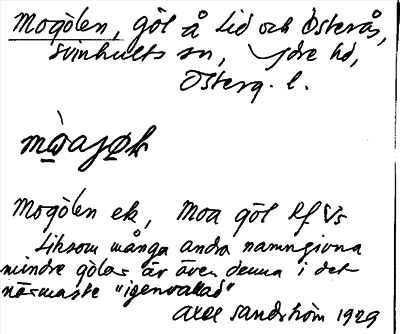 Mogölen, göl å Lid och Österås,
Svinhults sn, Ydre hd,
Österg. l.
Mogölen ek, Moa göl
Liksom många andra namngivna
mindre gölar är även denna i det
närmaste "igenvallad"
Axel Sandström 1929